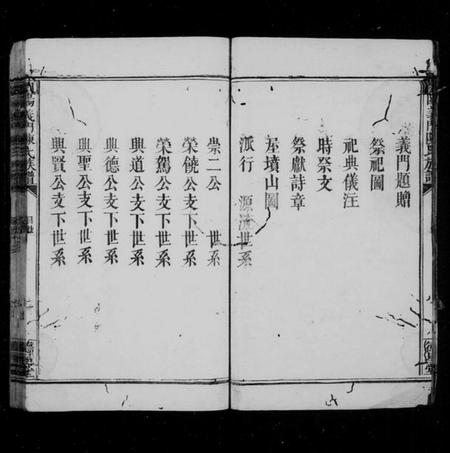 義門題贈
祭祀圖
祀典儀注
時祭文
祭獻詩章
墳山圖
派行 源流世系
崇二公 世系
榮饒公支下世系
榮駕公支下世系
興道公支下世系
興德公支下世系
興聖公支下世系
興賢公支下世系